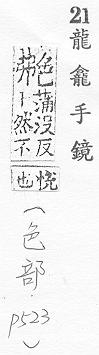 21 龍龕手鏡
艴蒲沒反卜然不
悅也
(色部.p523)